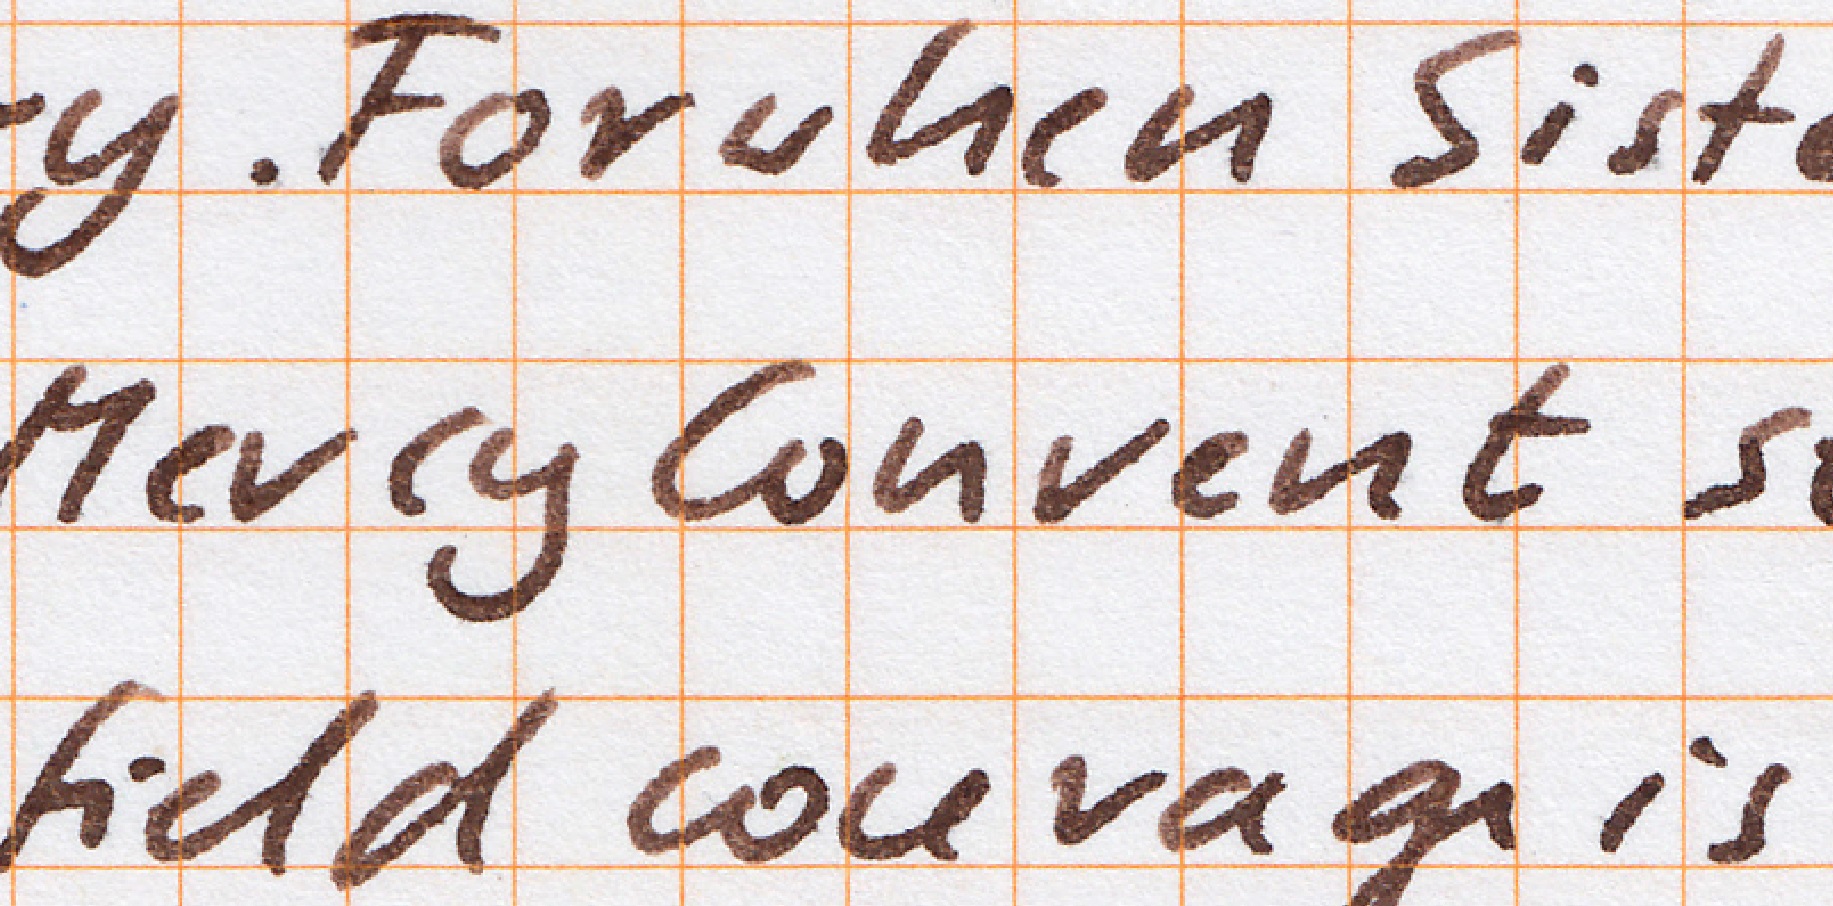 ry. For when Siste
Mercy Convent se
field courage is